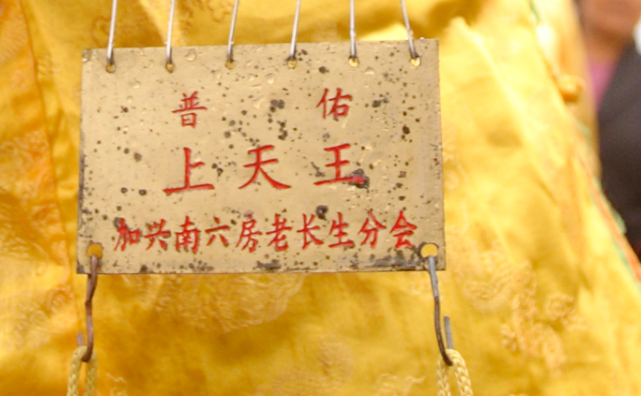 普 佑
上天王
加兴南六房老长生分会